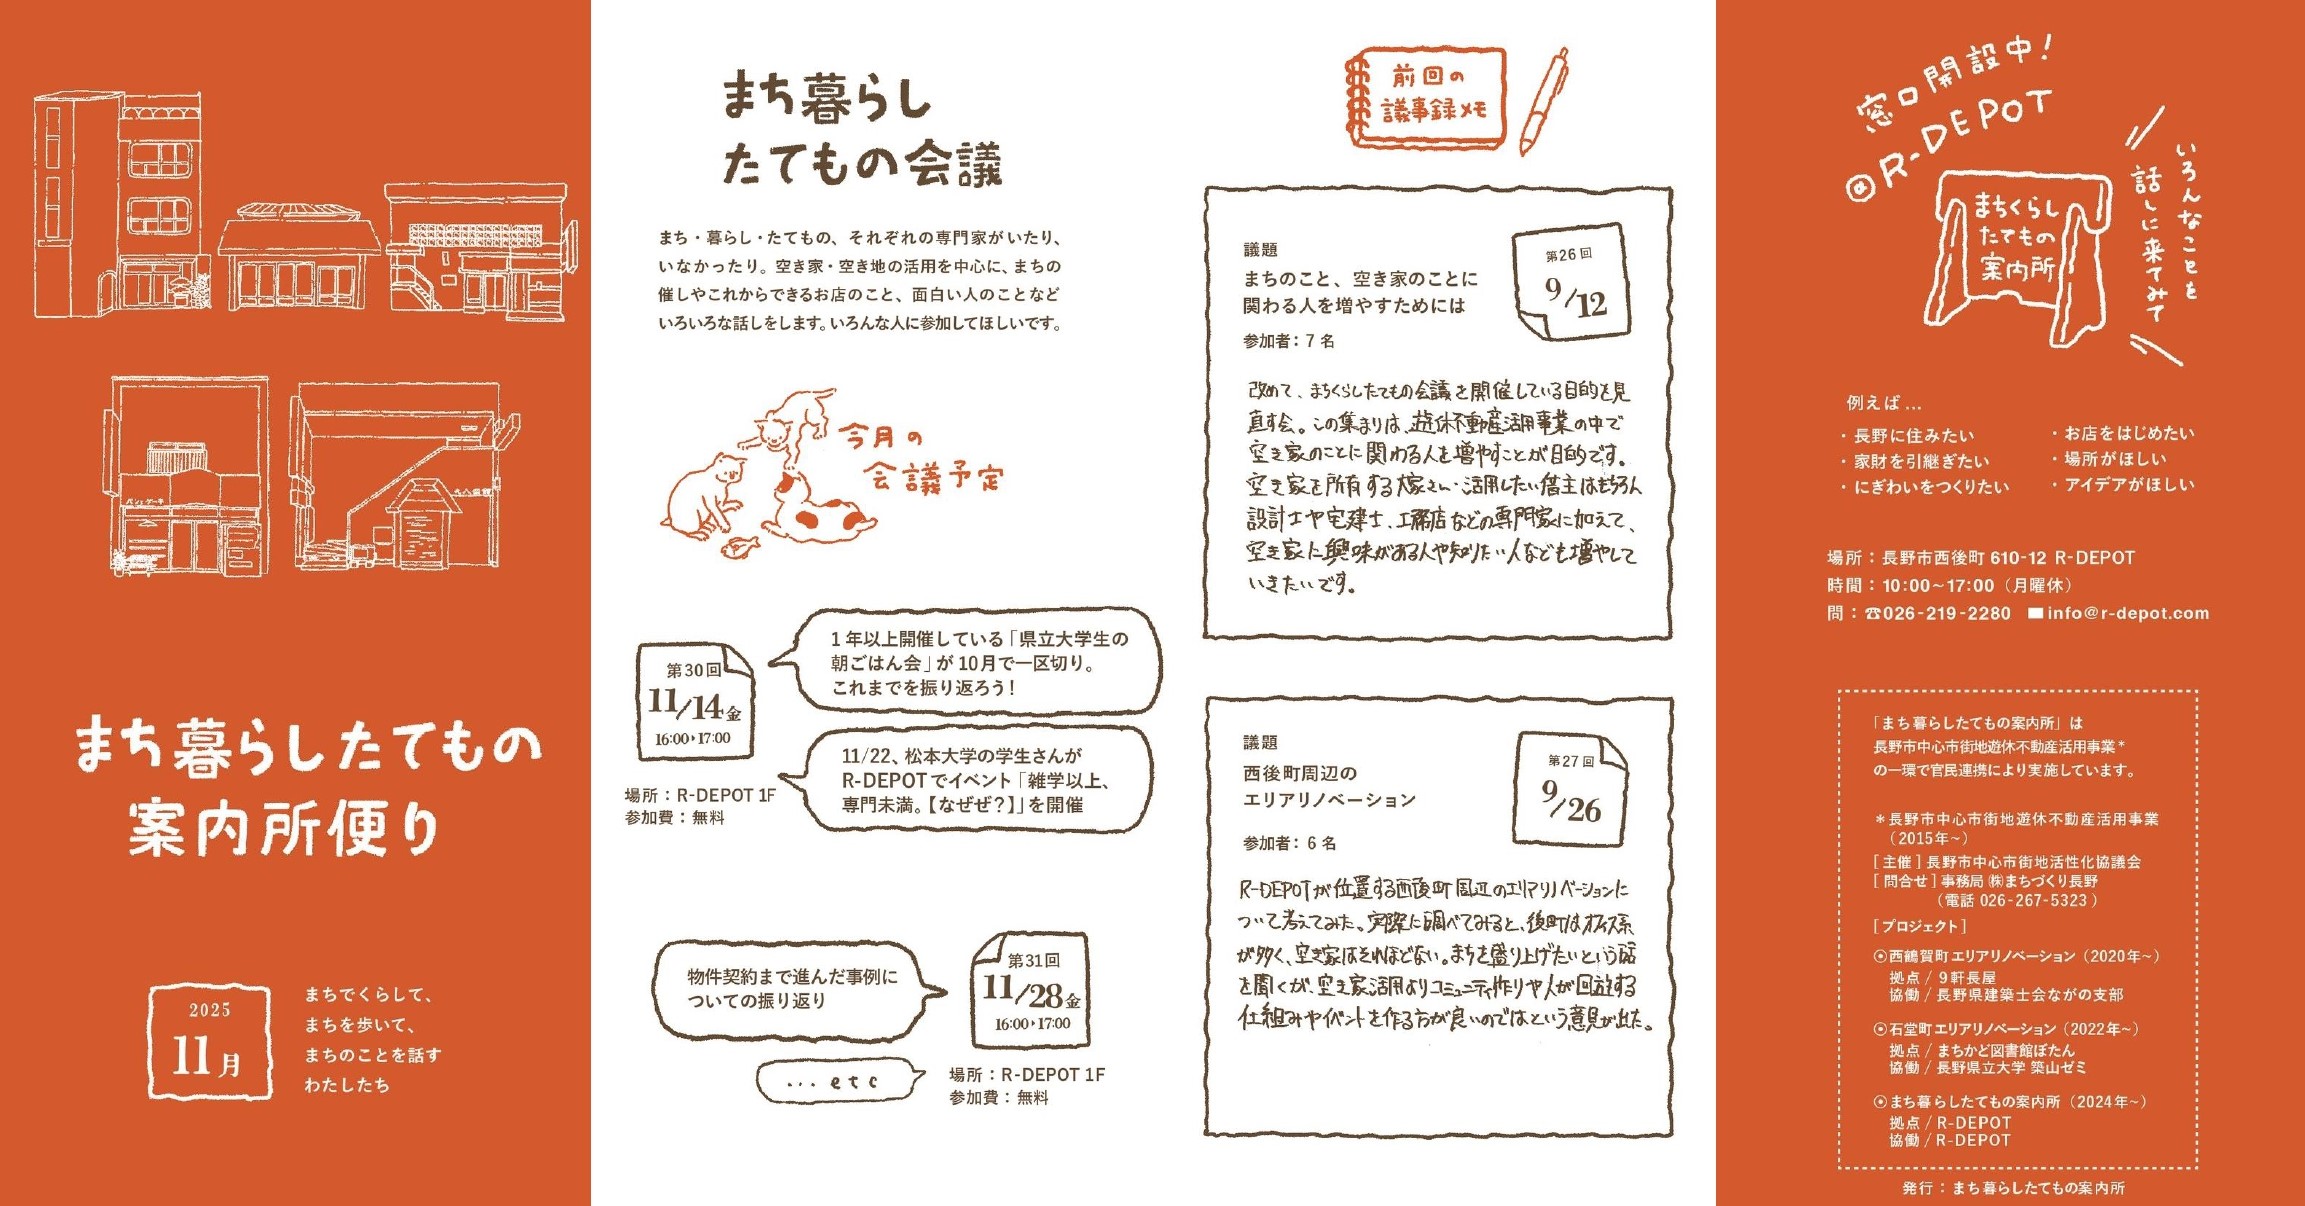 まち暮らしたてもの
案内所便り
2025
11月
まちでくらして、
まちを歩いて、
まちのことを話す
わたしたち
まち暮らし
たてもの会議
まち・暮らし・たてもの、それぞれの専門家がいたり、
いなかったり。空き家・空き地の活用を中心に、まちの
催しやこれからできるお店のこと、面白い人のことなど
いろいろな話しをします。いろんな人に参加してほしいです。
今月の
会議予定
第30回
11/14金
16:00▸17:00
場所：R-DEPOT 1F
参加費：無料
1年以上開催している「県立大学生の
朝ごはん会」が10月で一区切り。
これまでを振り返ろう！
11/22、松本大学の学生さんが
R-DEPOTでイベント「雑学以上、
専門未満。【なぜぜ？】」を開催
物件契約まで進んだ事例に
ついての振り返り
第31回
11/28金
16:00▸17:00
...etc
場所：R-DEPOT 1F
参加費：無料
前回の
議事録メモ
議題
まちのこと、空き家のことに
関わる人を増やすためには
参加者：7名
第26回
9/12
改めて、まちくらしたてもの会議を開催している目的を見
直す会。この集まりは、遊休不動産活用事業の中で
空き家のことに関わる人を増やすことが目的です。
空き家を所有する大家さん・活用したい借主はもちろん
設計士や宅建士、工務店などの専門家に加えて、
空き家に興味がある人や知りたい人なども増やして
いきたいです。
議題
西後町周辺の
エリアリノベーション
参加者：6名
第27回
9/26
R-DEPOTが位置する西後町周辺のエリアリノベーションに
ついて考えてみた。実際に調べてみると、後町はオフィス系
が多く、空き家はそれほどない。まちを盛り上げたいという話
を聞くが、空き家活用よりコミュニティ作りや人が回遊する
仕組みやイベントを作る方が良いのではという意見が出た。
窓口開設中！
@R-DEPOT
まちくらし
たてもの
案内所
いろんなことを
話しに来てみて
例えば…
・長野に住みたい
・家財を引継ぎたい
・にぎわいをつくりたい
・お店をはじめたい
・場所がほしい
・アイデアがほしい
場所：長野市西後町 610-12 R-DEPOT
時間：10:00~17:00（月曜休）
問：☎026-219-2280 ✉info@r-depot.com
「まち暮らしたてもの案内所」は
長野市中心市街地遊休不動産活用事業*
の一環で官民連携により実施しています。
＊長野市中心市街地遊休不動産活用事業
（2015年~）
［主催］長野市中心市街地活性化協議会
［問合せ］事務局 ㈱まちづくり長野
（電話 026-267-5323）
［プロジェクト］
⦿西鶴賀町エリアリノベーション（2020年~）
拠点 / 9軒長屋
協働 / 長野県建築士会ながの支部
⦿石堂町エリアリノベーション（2022年~）
拠点 / まちかど図書館ぼたん
協働 / 長野県立大学 築山ゼミ
⦿まち暮らしたてもの案内所（2024年~）
拠点 / R-DEPOT
協働 / R-DEPOT
発行：まち暮らしたてもの案内所